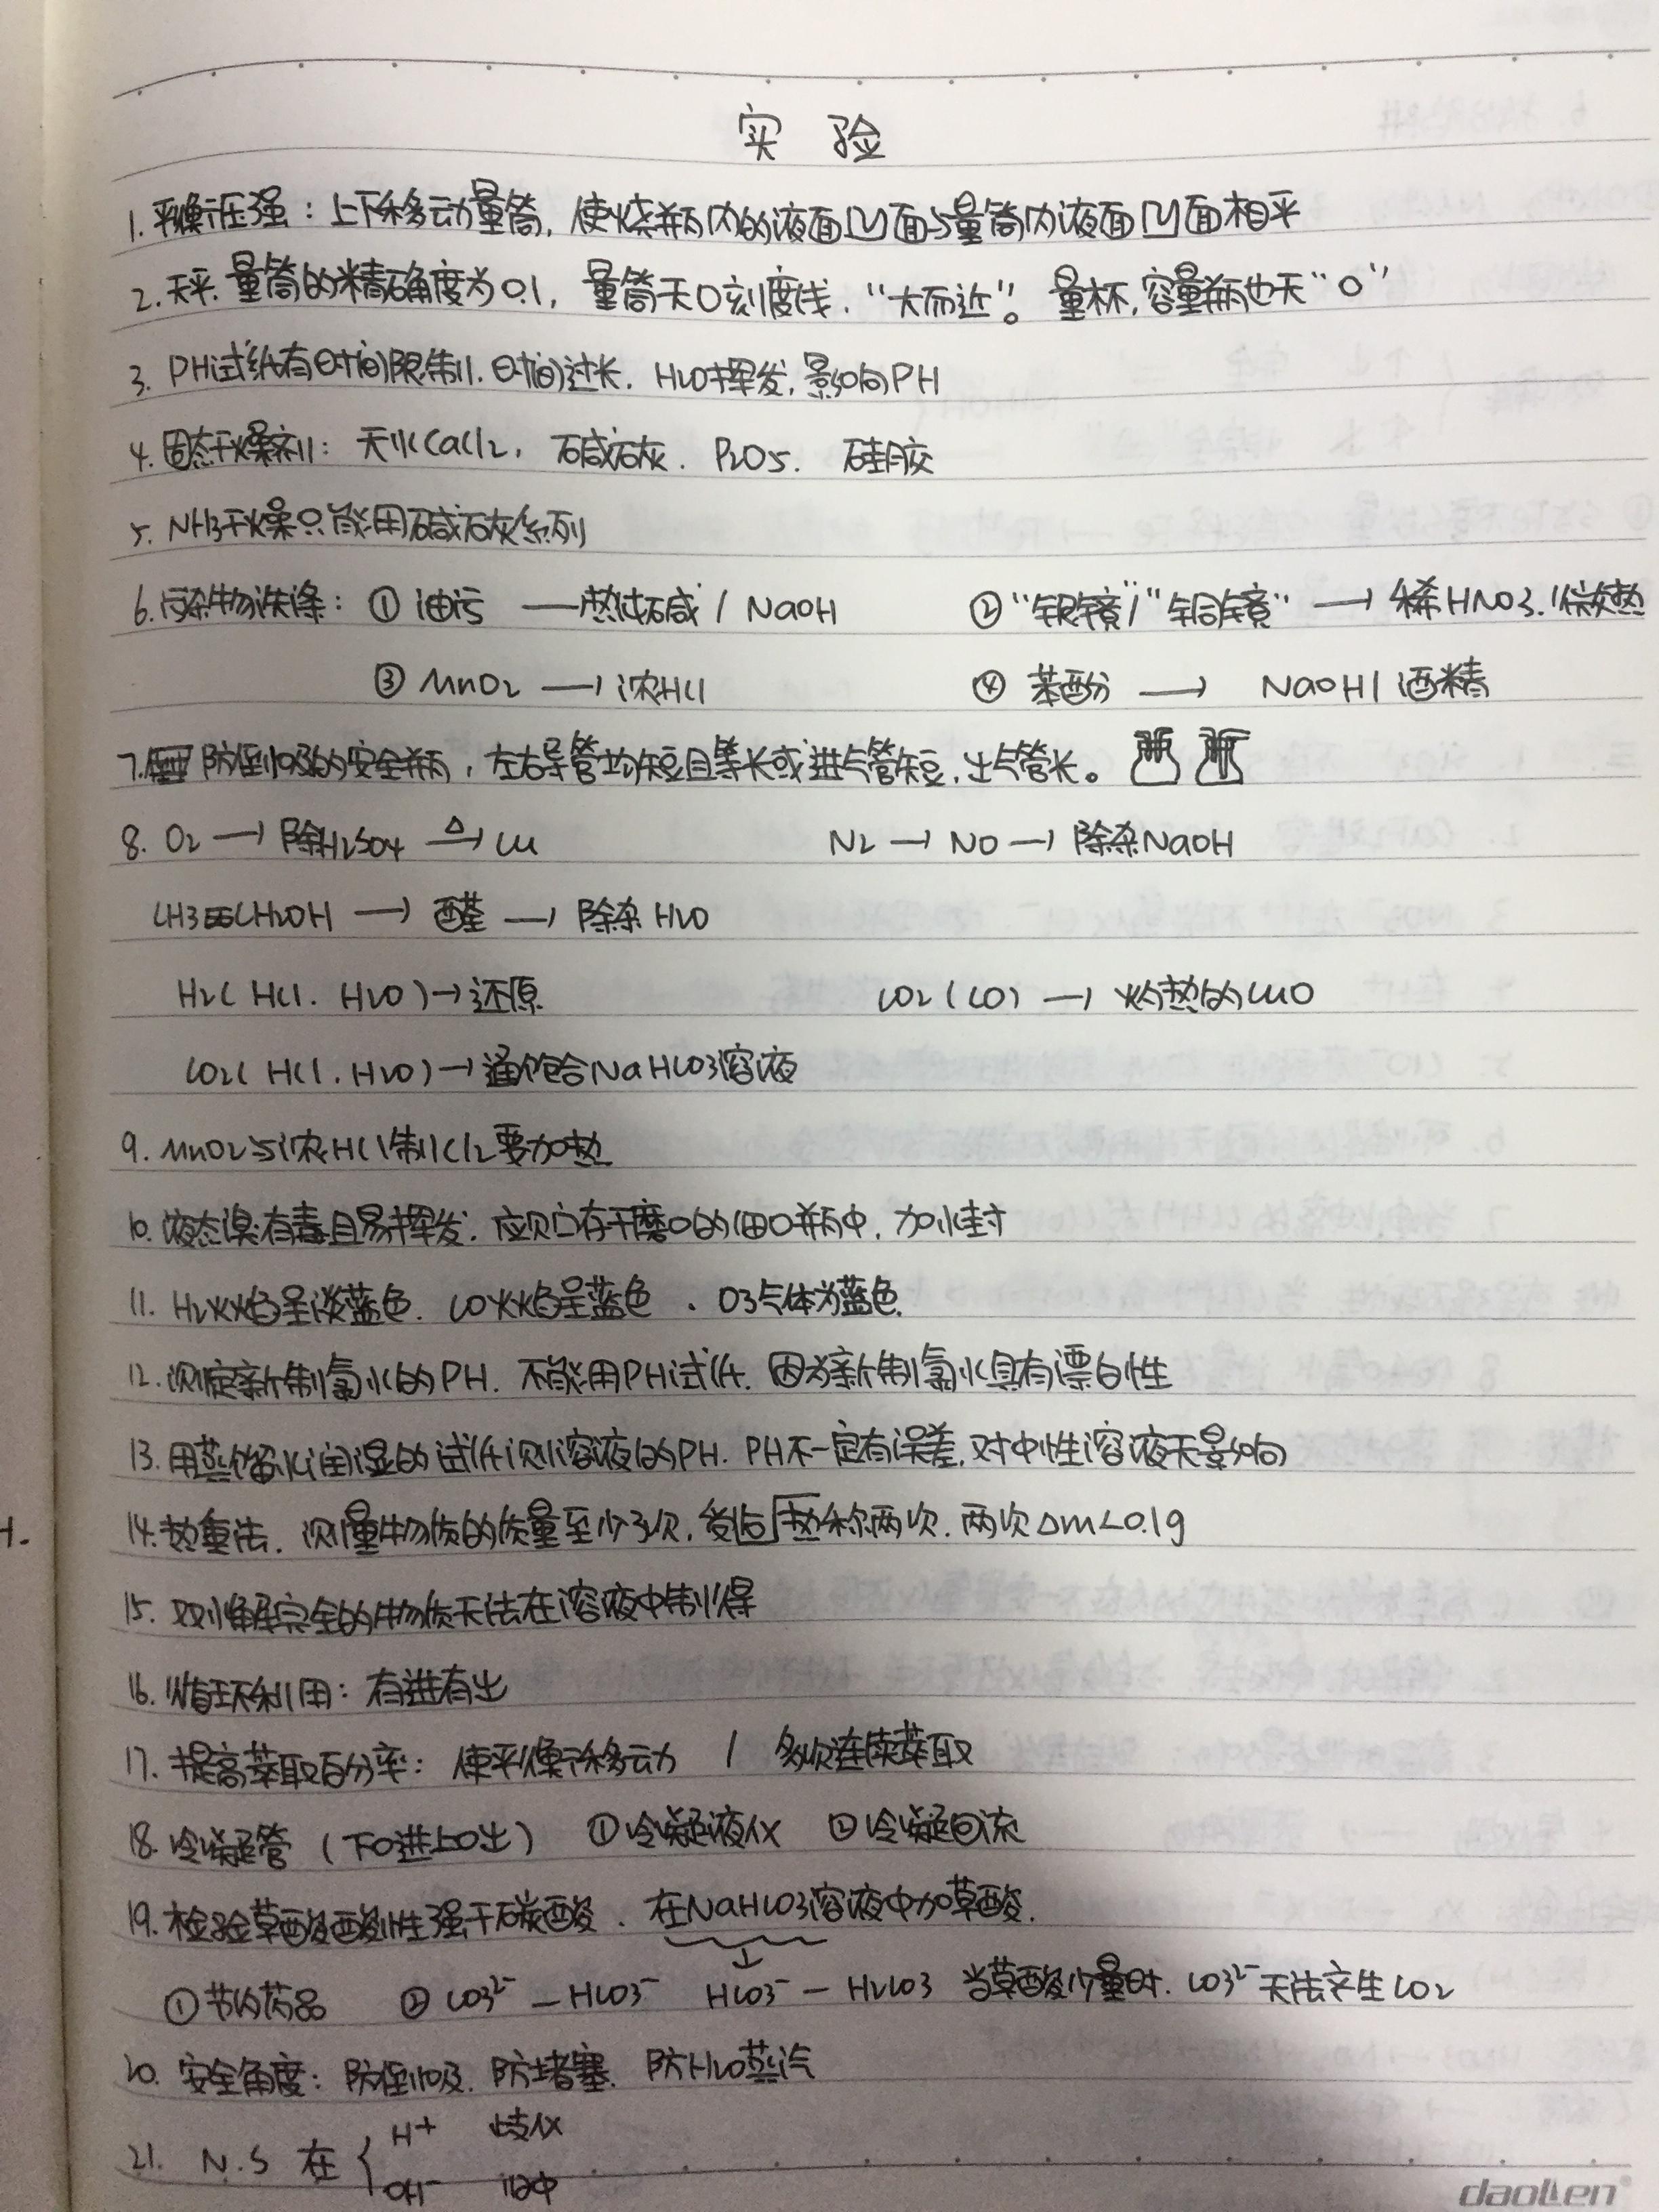 实 验
1. 平衡压强：上下移动量筒，使烧瓶内的液面凹面与量筒内液面凹面相平
2. 天平.量筒的精确度为0.1，量筒无0刻度线．“大而近”。量杯，容量瓶也无“0”
3. PH试纸有时间限制．时间过长．H2O挥发，影响PH
4. 固态干燥剂：无水CaCl2， 碱石灰． P2O5． 硅胶
5. NH3干燥只能用碱石灰系列
6. 污染物洗涤：① 油污 — 热纯碱 / NaOH ② “银镜”/“铜镜” → 稀HNO3．微热
③ MnO2 → 浓HCl ④ 苯酚 → NaOH / 酒精
7. 防倒吸的安全瓶，左右导管均短且等长或进气管短，出气管长。
8. O2 → 除H2SO4 △→ Cu N2 → NO → 除杂NaOH
CH3CH2OH → 醛 → 除杂 H2O
H2( HCl . H2O )→还原 CO2 (CO) → 灼热的CuO
CO2( HCl . H2O )→通饱合NaHCO3溶液
9. MnO2与浓HCl制Cl2要加热
10. 液态溴有毒且易挥发．应贮存于磨口的细口瓶中，加水封
11. H2火焰呈淡蓝色． CO火焰呈蓝色 . O3气体为蓝色.
12. 测定新制氯水的PH．不能用PH试纸．因为新制氯水具有漂白性
13. 用蒸馏水润湿的试纸测溶液的PH．PH不一定有误差，对中性溶液无影响
14. 热重法．测量物质的质量至少3次，热称两次．两次△m<0.1g
15. 双水解完全的物质无法在溶液中制得
16. 循环利用：有进有出
17. 提高萃取百分率：使平衡移动 / 多次连续萃取
18. 冷凝管（下口进上口出） ①冷凝液仪 ②冷凝回流
19. 检验草酸酸性强于碳酸．在NaHCO3溶液中加草酸．
↓
①节约药品 ② CO3²⁻ — HCO3⁻ HCO3⁻ — H2CO3 当草酸少量时．CO3²⁻无法产生CO2
20. 安全角度：防倒吸．防堵塞．防H2O蒸汽
21. N.S 在 { H⁺
OH⁻ 归中
daolen